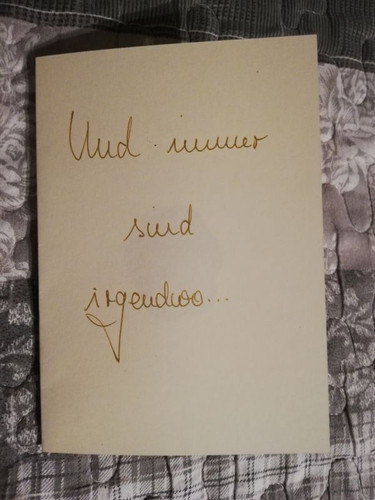 Und immer
sind
irgendwo...